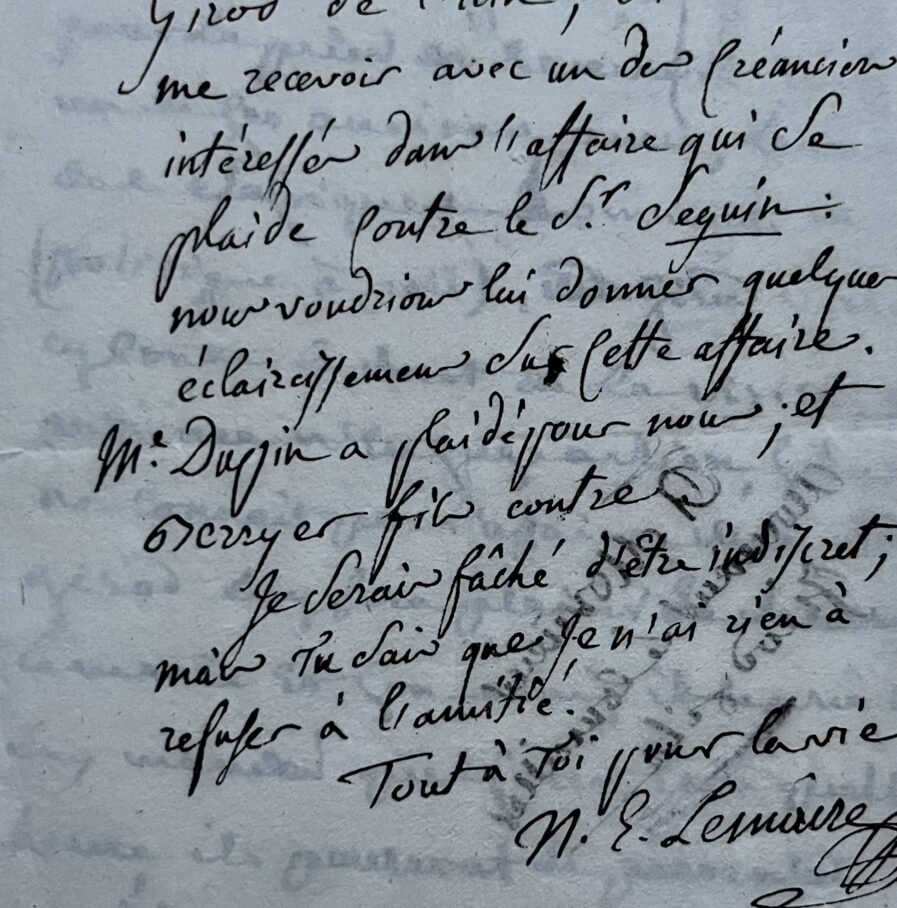 Girod de l'Ain, de
me recevoir avec un des Créanciers
intéressés dans l'affaire qui se
plaide Contre le S.r Seguin:
nous voudrions lui donner quelques
éclaircissemens sur Cette affaire.
M.e Duppin a plaidé pour nous; et
Berryer fils contre
Je serais fâché d'être indiscret;
mais tu sais que je n'ai rien à
refuser à l'amitié.
Tout à toi pour la vie
N. E. Lemaire